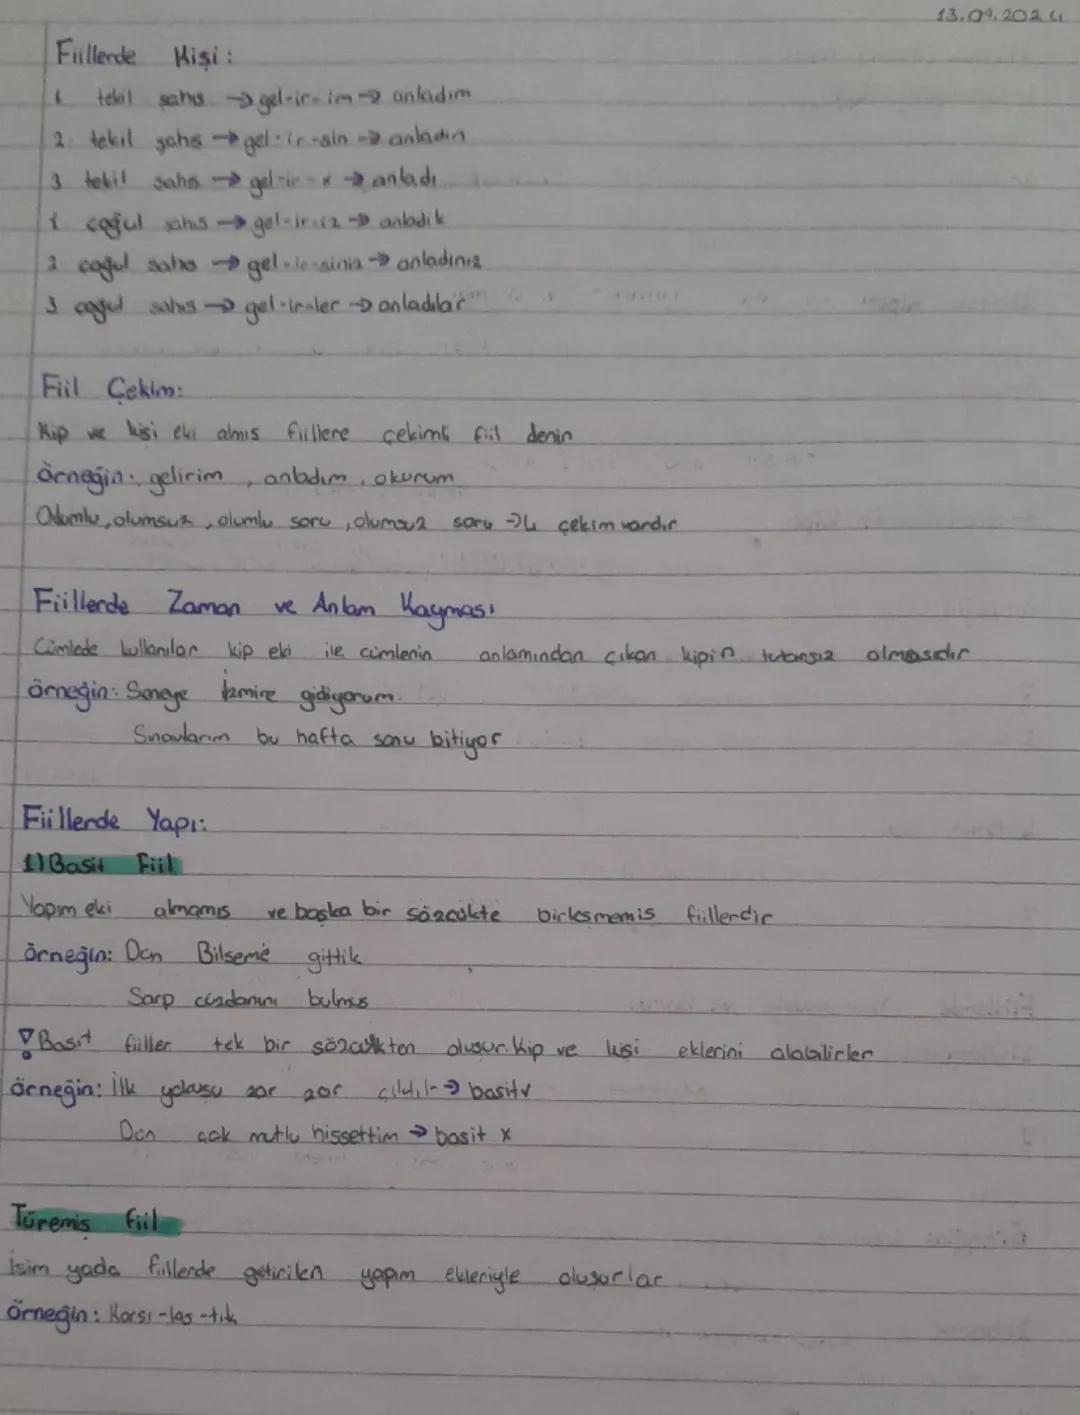 13.09.2024
Fiillerde Kişi:
1 tekil şahıs → gel-ir-im → anladım
2. tekil şahıs → gel-ir-sin → anladın
3 tekil şahıs → gel-ir-x → anladı
1 çoğul şahıs → gel-ir-iz → anladık
2 çoğul şahıs → gel-ir-siniz → anladınız
3 çoğul şahıs → gel-ir-ler → anladılar
Fiil Çekim:
Kip ve kişi eki almış fiillere çekimli fiil denir
Örneğin: gelirim, anladım, okurum
Olumlu, olumsuz, olumlu soru, olumsuz soru → 4 çekim vardır
Fiillerde Zaman ve Anlam Kayması
Cümlede kullanılan kip eki ile cümlenin anlamından çıkan kipin tutarsız olmasıdır
örneğin: Seneye İzmire gidiyorum.
Sınavlarım bu hafta sonu bitiyor
Fiillerde Yapı:
1) Basit Fiil
Yapım eki almamış ve başka bir sözcükte birleşmemiş fiillerdir
örneğin: Dün Bilseme gittik
Sarp cüzdanını bulmuş
Basit fiiller tek bir sözcükten oluşur. Kip ve kişi eklerini alabilirler
örneğin: İlk yokuşu zor zor çıktık → basit ✓
Dün çok mutlu hissettim → basit x
Türemiş fiil
İsim yada fiillerde getirilen yapım ekleriyle oluşurlar
örneğin: Karşı-laş-tık